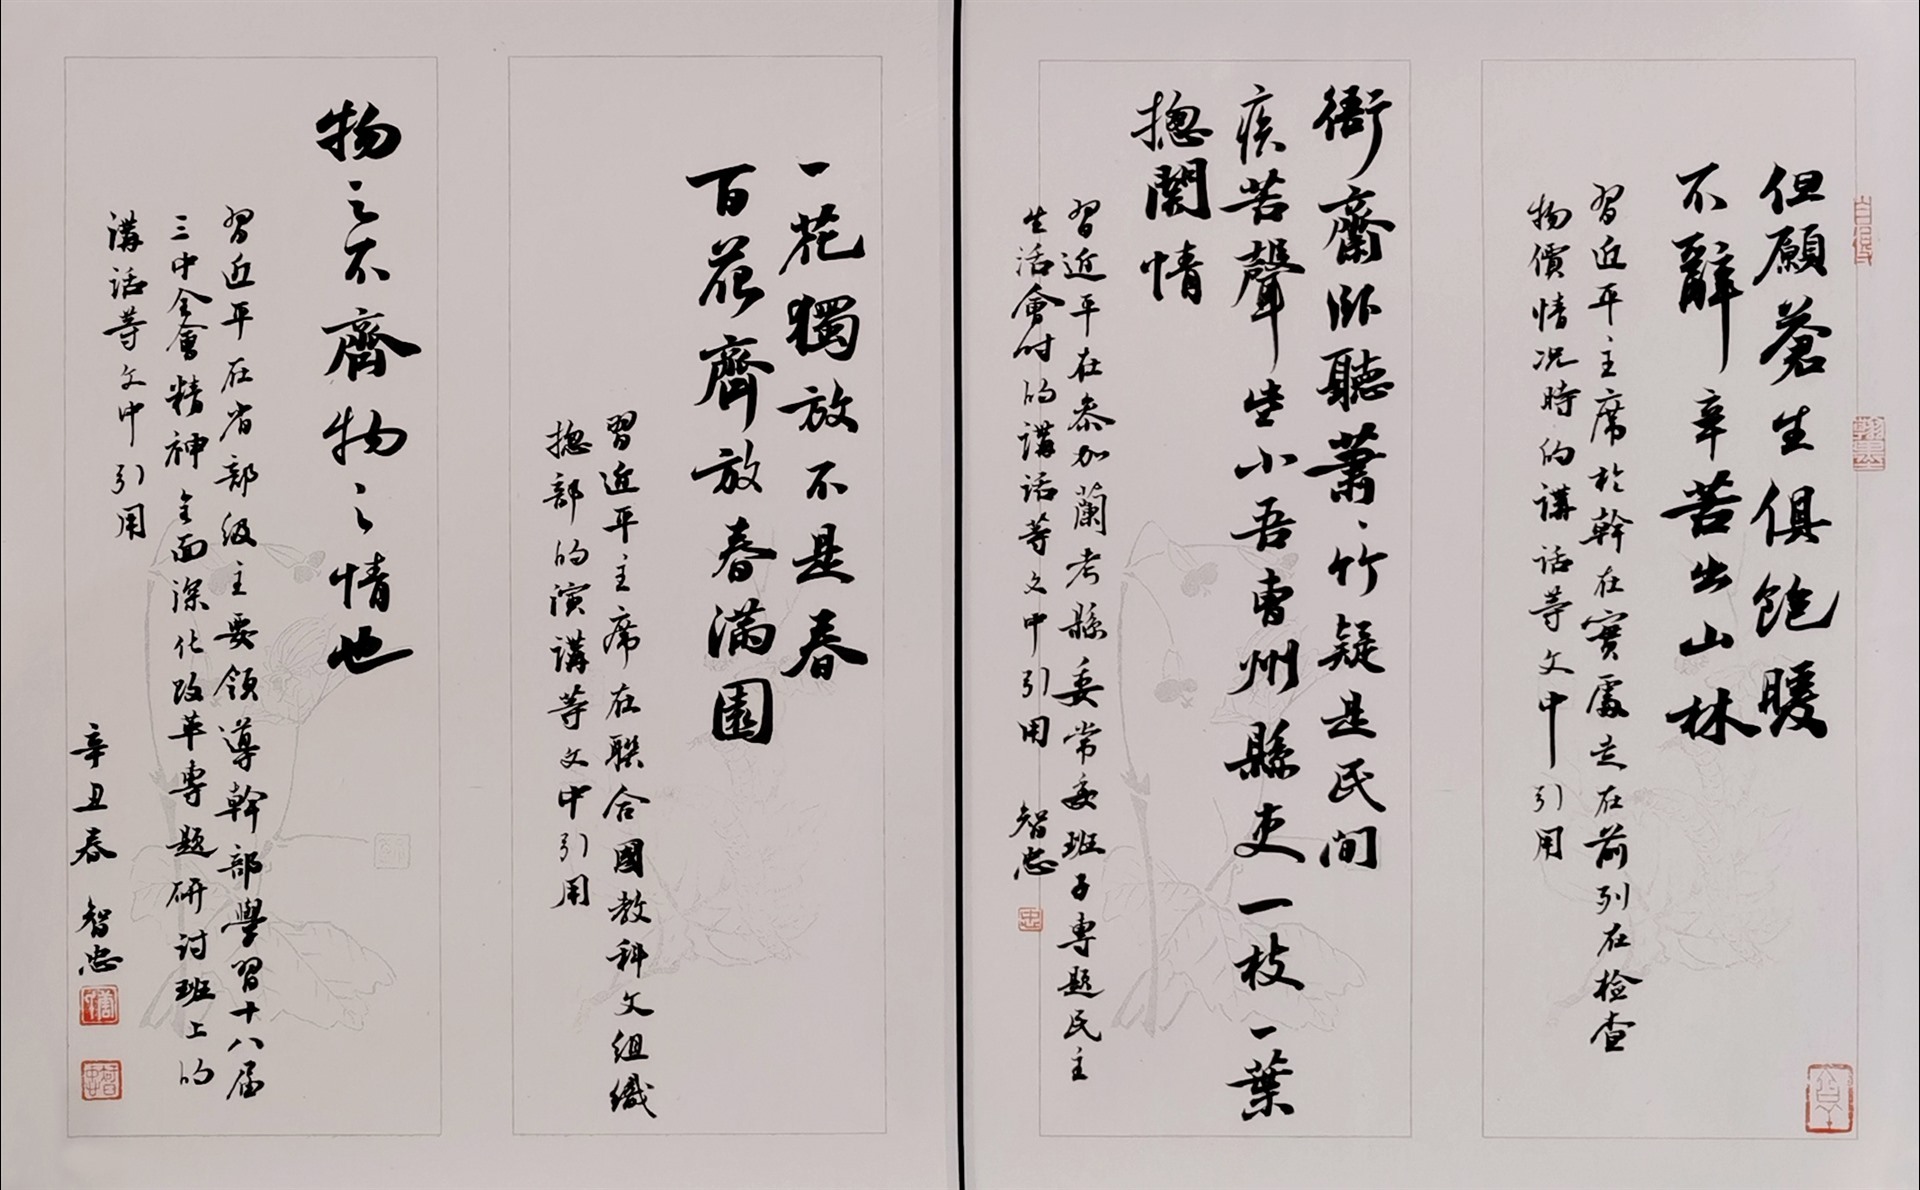 但願蒼生俱飽暖
不辭辛苦出山林
習近平主席於幹在實處走在前列在檢查
物價情況時的講話等文中引用
衙齋卧聽蕭〻竹疑是民間
疾苦聲些小吾曹州縣吏一枝一葉
揔關情
習近平在參加蘭考縣委常委班子專題民主
生活會時的講話等文中引用 智忠
一花獨放不是春
百花齊放春滿園
習近平主席在聯合國教科文組織
揔部的演講等文中引用
物之不齊物之情也
習近平在省部級主要領導幹部學習十八屆
三中全會精神全面深化改革專題研討班上的
講話等文中引用
辛丑春 智忠